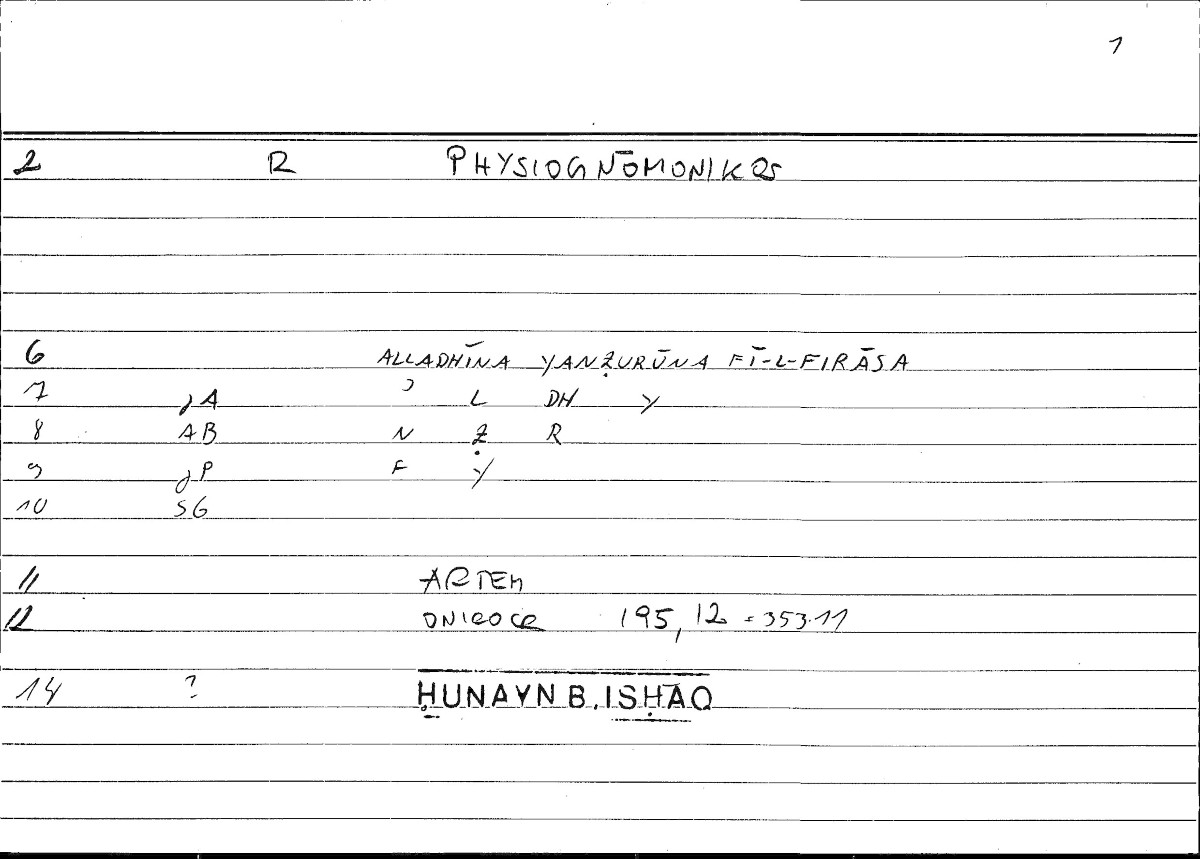 1
2 R PHYSIOGNŌMONIKOS
6 ALLADHĪNA YANẒURŪNA FĪ-L-FIRĀSA
7 jA ʾ L DH Y
8 AB N Ẓ R
9 jP F Y
10 SG
11 ARTEM
12 ONIROCR 195,12 = 353.11
14 ? ḤUNAYN B. ISḤĀQ